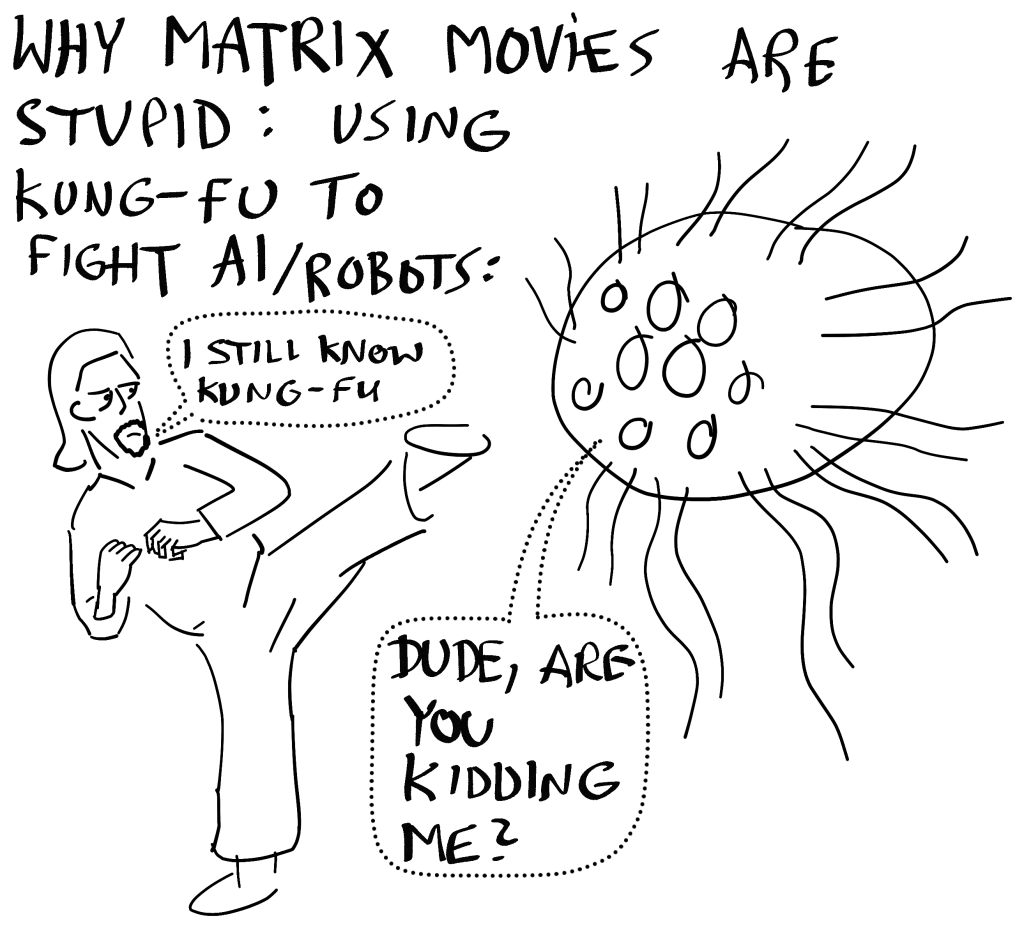 WHY MATRIX MOVIES ARE
STUPID: USING
KUNG-FU TO
FIGHT AI/ROBOTS:
I STILL KNOW
KUNG-FU
DUDE, ARE
YOU
KIDDING
ME?